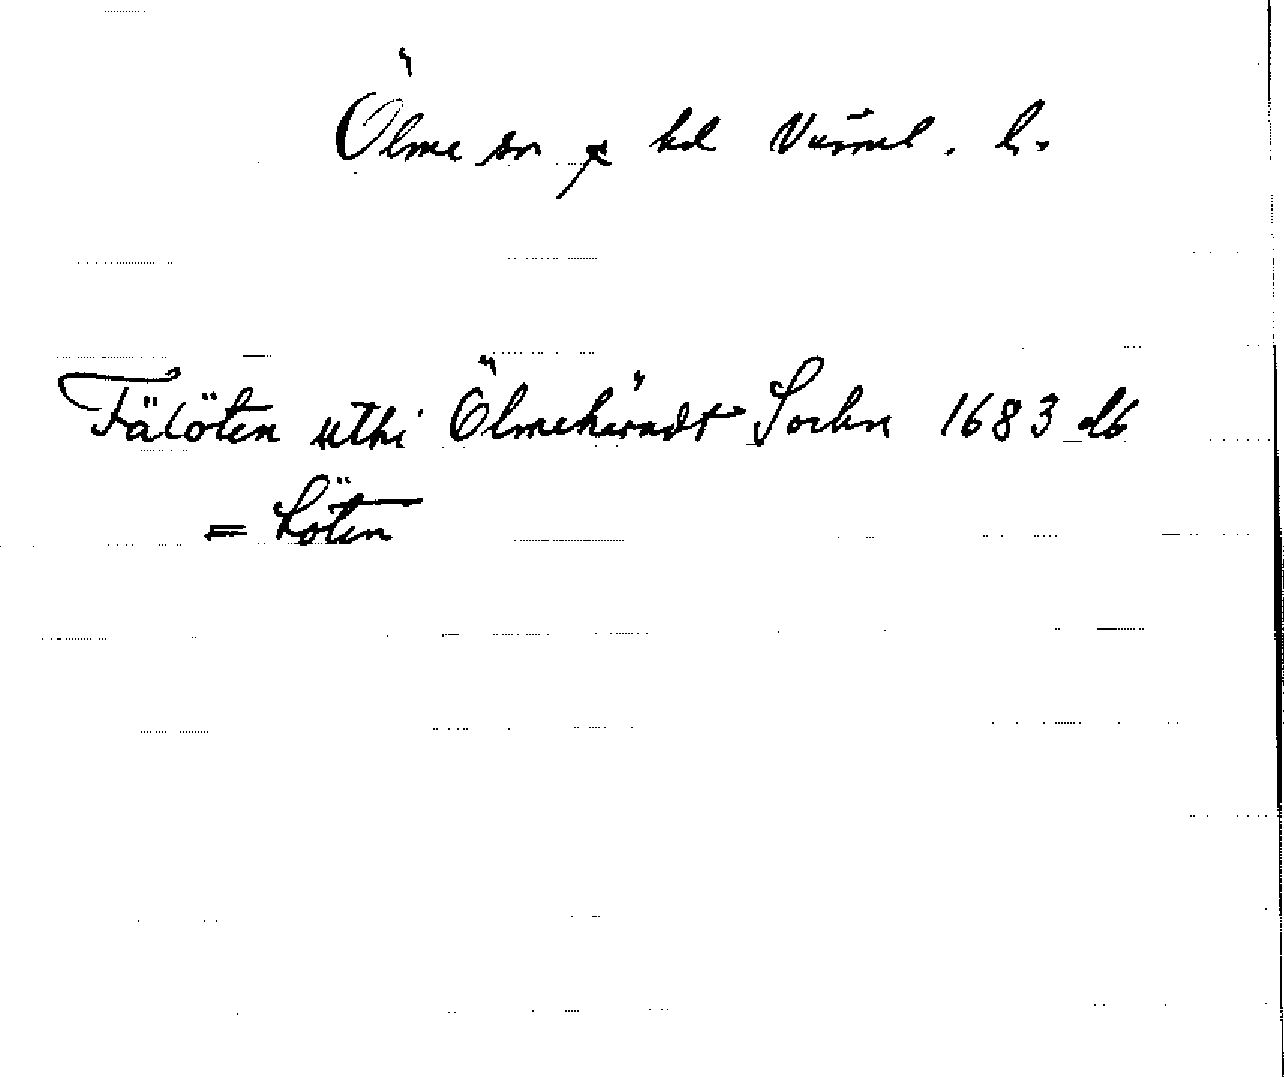 Ölme sn o hd Värml. l.
Fälöten uthi Ölmehäradt Sochn 1683 db
= Löten